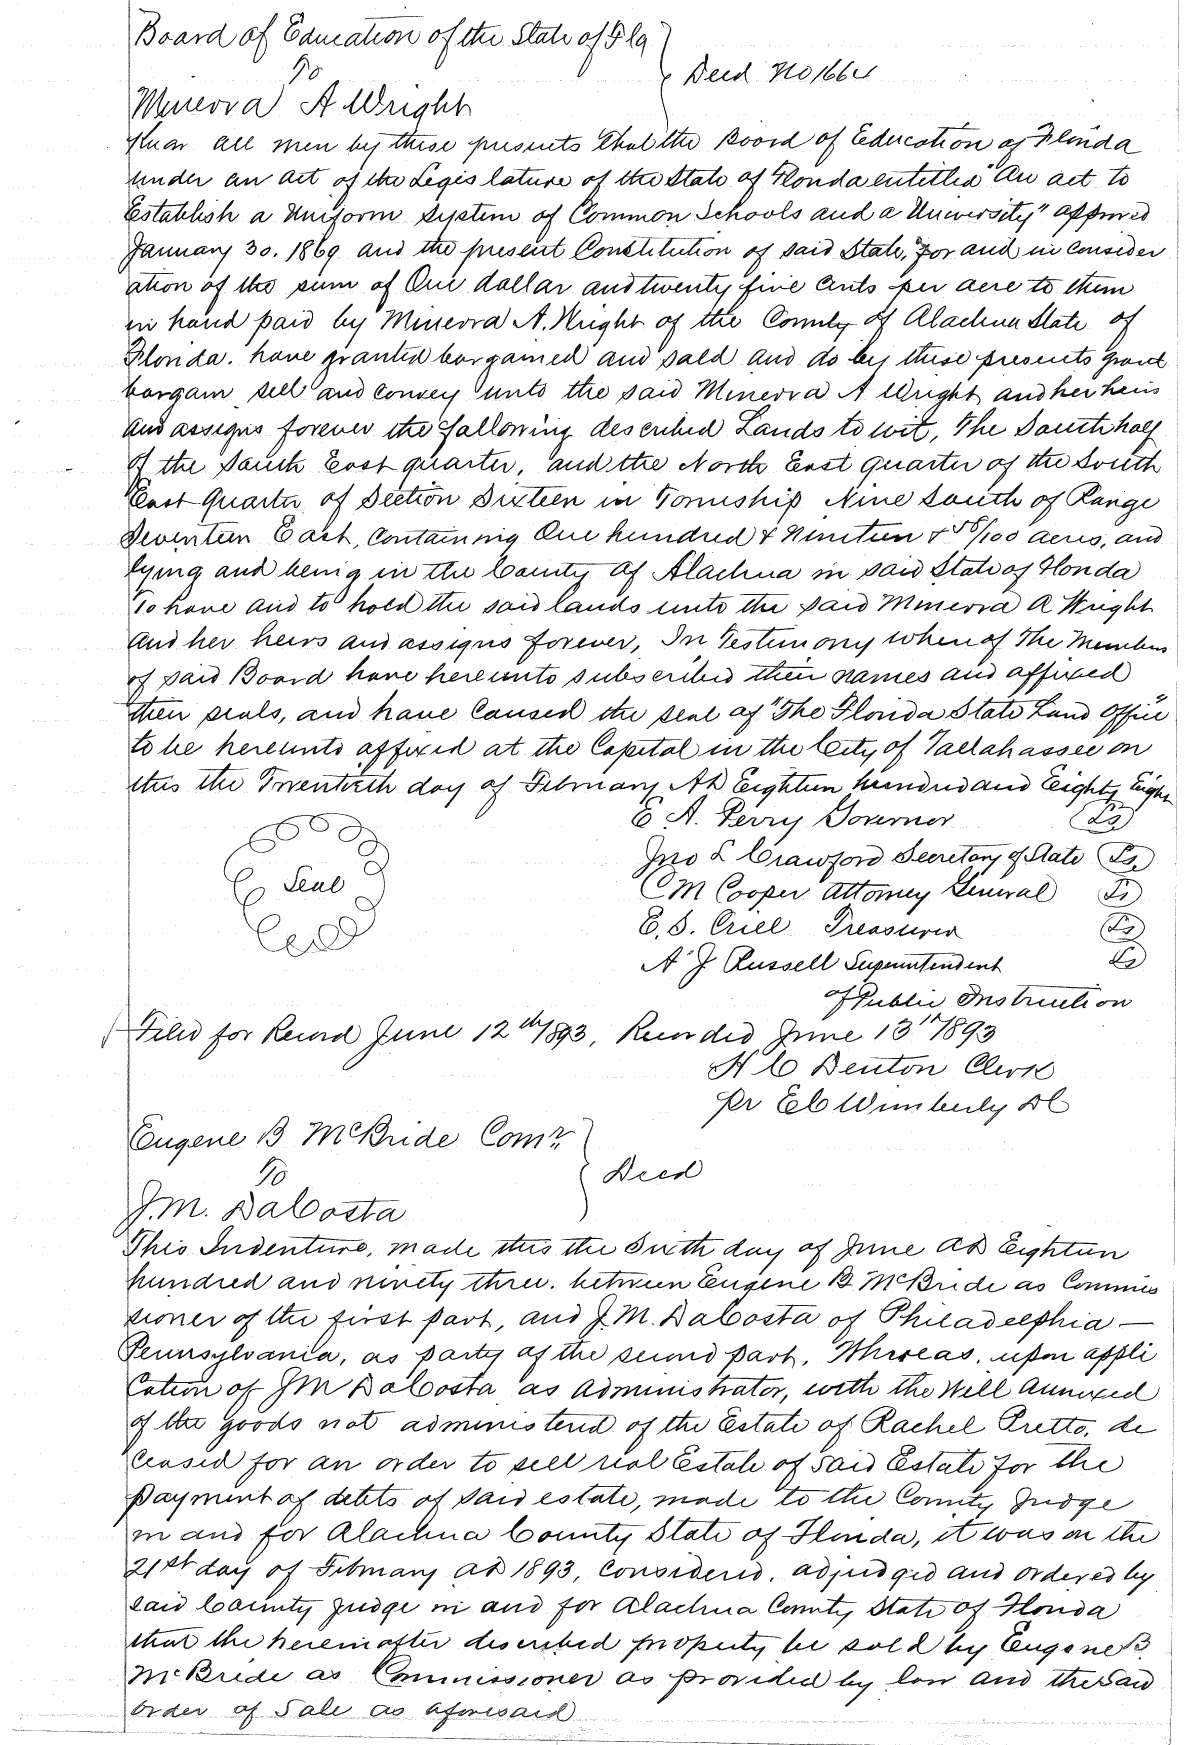 Board of Education of the State of Fla
To
Deed No 1664
Minerva A Wright
Know all men by these presents that the Board of Education of Florida
under an act of the Legislature of the State of Florida entitled "An act to
Establish a Uniform system of Common Schools and a University" approved
January 30. 1869 and the present Constitution of said State, for and in consider
ation of the sum of One dollar and twenty five cents per acre to them
in hand paid by Minerva A. Wright of the County of Alachua State of
Florida. have granted bargained and sold and do by these presents grant
bargain sell and convey unto the said Minerva A Wright and her heirs
and assigns forever the following described Lands to wit, The South half
of the South East quarter, and the North East quarter of the South
East Quarter of Section Sixteen in Township Nine South of Range
Seventeen East, containing One hundred & Nineteen & /100 acres, and
lying and being in the County of Alachua in said State of Florida
To have and to hold the said lands unto the said Minerva A Wright
and her heirs and assigns forever, In Testimony whereof The Members
of said Board have hereunto subscribed their names and affixed
their seals, and have caused the seal of "The Florida State Land Office"
to be hereunto affixed at the Capital in the City of Tallahassee on
this the Twentieth day of February AD Eighteen hundred and Eighty Eight
E A. Perry Governor Ls
Jno L Crawford Secretary of State Ls
Seal
C M Cooper Attorney General Ls
E. S. Crill Treasurer Ls
A J Russell Superintendent Ls
of Public Instruction
Filed for Record June 12th/1893, Recorded June 13th/1893
H C Denton Clerk
Pr E C Wimberly DC
Eugene B McBride Comr
To
Deed
J. M. DaCosta
This Indenture, made this the Sixth day of June AD Eighteen
hundred and ninety three. between Eugene B McBride as Commis
sioner of the first part, and J. M. DaCosta of Philadelphia —
Pennsylvania, as party of the second part, Whereas, upon appli
cation of J M DaCosta as administrator, with the Will Annexed
of the goods not administered of the Estate of Rachel Pretto, de
ceased for an order to sell real Estate of said Estate for the
payment of debts of said estate, made to the County Judge
in and for Alachua County State of Florida, it was on the
21st day of February AD 1893, considered, adjudged and ordered by
said County Judge in and for Alachua County State of Florida
that the hereinafter described property be sold by Eugene B
McBride as Commissioner as provided by law and the said
order of Sale as aforesaid